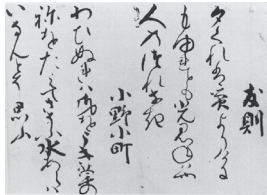 友則
夕されは蛍よりけに
もゆれとも光見ねはや
人のつれなき
小野小町
わひぬれは身をうき草の
祢をたえてさそふ水あらは
いなんとそ思ふ